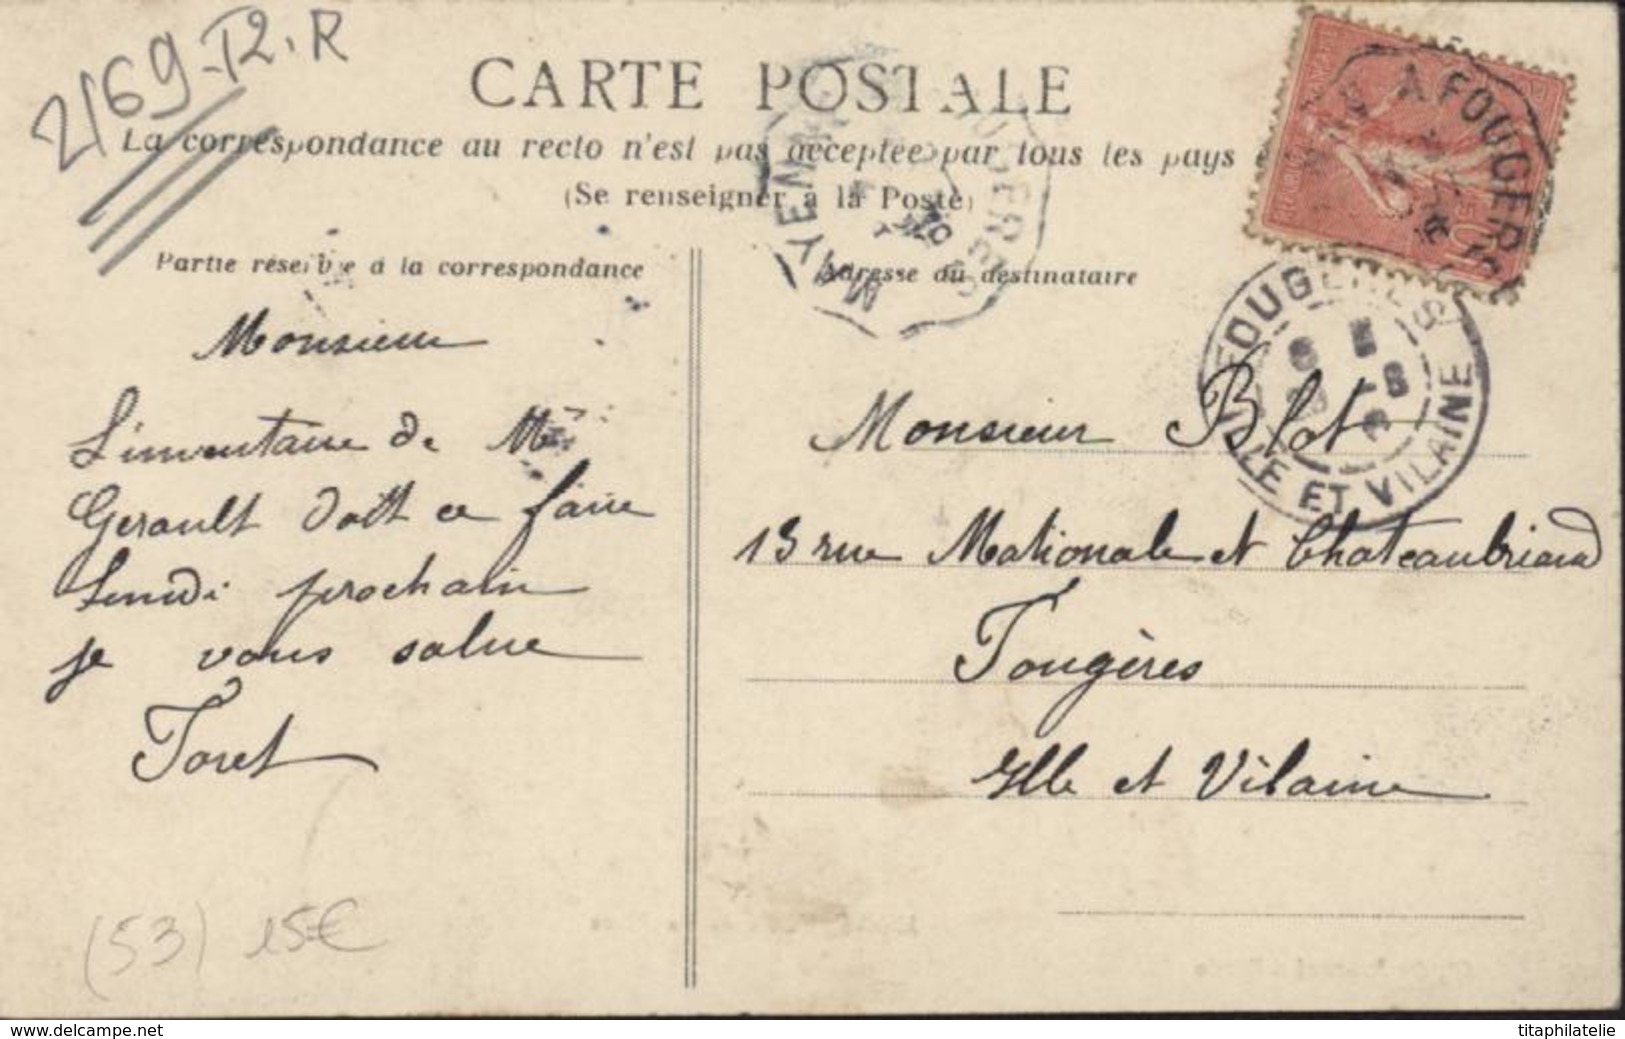 2169-T2.R
CARTE POSTALE
La correspondance au recto n'est pas acceptée par tous les pays
(Se renseigner à la Poste)
Partie réservée à la correspondance
Adresse du destinataire
A FOUGERES
MAYENNE
FOUGERES
ILLE ET VILAINE
Monsieur
L'inventaire de Mr
Gerault doit ce faire
Lundi prochain
je vous salue
Foret
Monsieur Blot
13 rue Nationale et Chateaubriand
Fougères
Ille et Vilaine
(53) 15€
www.delcampe.net
titaphilatelie